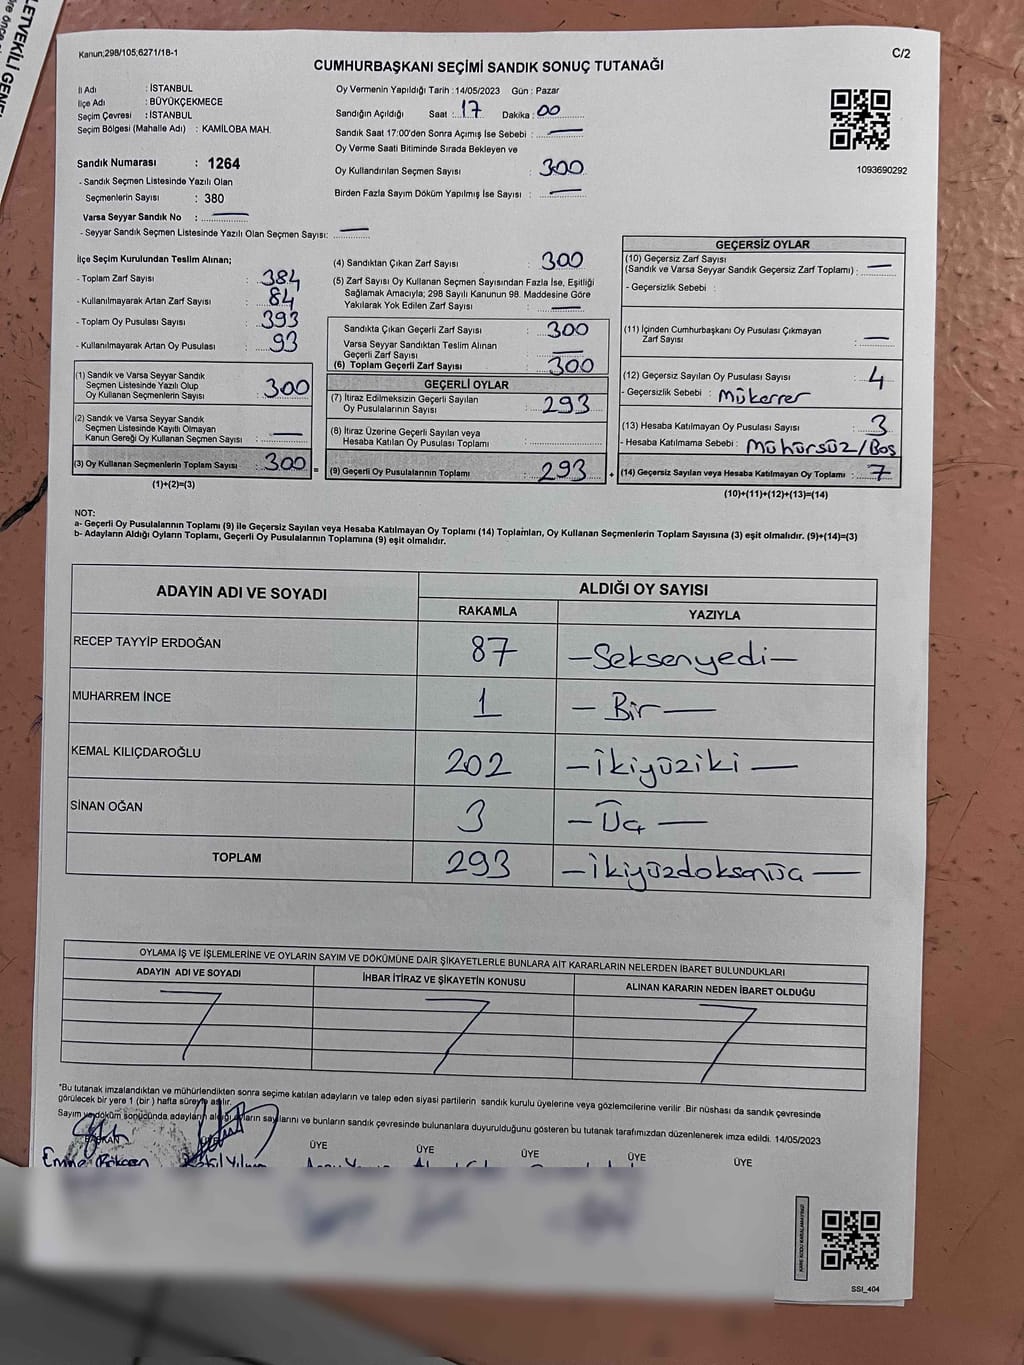 LETVEKİLİ GENE
Kanun;298/105;6271/18-1
C/2
CUMHURBAŞKANI SEÇİMİ SANDIK SONUÇ TUTANAĞI
İl Adı : İSTANBUL
İlçe Adı : BÜYÜKÇEKMECE
Seçim Çevresi : İSTANBUL
Seçim Bölgesi (Mahalle Adı) : KAMİLOBA MAH.
Sandık Numarası : 1264
- Sandık Seçmen Listesinde Yazılı Olan
Seçmenlerin Sayısı : 380
Varsa Seyyar Sandık No : —
- Seyyar Sandık Seçmen Listesinde Yazılı Olan Seçmen Sayısı: —
Oy Vermenin Yapıldığı Tarih : 14/05/2023 Gün : Pazar
Sandığın Açıldığı Saat : 17 Dakika : 00
Sandık Saat 17:00'den Sonra Açımış İse Sebebi : —
Oy Verme Saati Bitiminde Sırada Bekleyen ve
Oy Kullandırılan Seçmen Sayısı : 300
Birden Fazla Sayım Döküm Yapılmış İse Sayısı : —
1093690292
İlçe Seçim Kurulundan Teslim Alınan;
- Toplam Zarf Sayısı : 384
- Kullanılmayarak Artan Zarf Sayısı : 84
- Toplam Oy Pusulası Sayısı : 393
- Kullanılmayarak Artan Oy Pusulası : 93
(1) Sandık ve Varsa Seyyar Sandık
Seçmen Listesinde Yazılı Olup
Oy Kullanan Seçmenlerin Sayısı : 300
(2) Sandık ve Varsa Seyyar Sandık
Seçmen Listesinde Kayıtlı Olmayan
Kanun Gereği Oy Kullanan Seçmen Sayısı : —
(3) Oy Kullanan Seçmenlerin Toplam Sayısı : 300
(1)+(2)=(3)
(4) Sandıktan Çıkan Zarf Sayısı : 300
(5) Zarf Sayısı Oy Kullanan Seçmen Sayısından Fazla İse, Eşitliği
Sağlamak Amacıyla; 298 Sayılı Kanunun 98. Maddesine Göre
Yakılarak Yok Edilen Zarf Sayısı : —
Sandıkta Çıkan Geçerli Zarf Sayısı : 300
Varsa Seyyar Sandıktan Teslim Alınan
Geçerli Zarf Sayısı : —
(6) Toplam Geçerli Zarf Sayısı : 300
GEÇERLİ OYLAR
(7) İtiraz Edilmeksizin Geçerli Sayılan
Oy Pusulalarının Sayısı : 293
(8) İtiraz Üzerine Geçerli Sayılan veya
Hesaba Katılan Oy Pusulası Toplamı :
(9) Geçerli Oy Pusulalarının Toplamı : 293
=
+
GEÇERSİZ OYLAR
(10) Geçersiz Zarf Sayısı
(Sandık ve Varsa Seyyar Sandık Geçersiz Zarf Toplamı) : —
- Geçersizlik Sebebi :
(11) İçinden Cumhurbaşkanı Oy Pusulası Çıkmayan
Zarf Sayısı : —
(12) Geçersiz Sayılan Oy Pusulası Sayısı : 4
- Geçersizlik Sebebi : Mükerrer
(13) Hesaba Katılmayan Oy Pusulası Sayısı : 3
- Hesaba Katılmama Sebebi : Mühürsüz/Boş
(14) Geçersiz Sayılan veya Hesaba Katılmayan Oy Toplamı : 7
(10)+(11)+(12)+(13)=(14)
NOT:
a- Geçerli Oy Pusulalarının Toplamı (9) ile Geçersiz Sayılan veya Hesaba Katılmayan Oy Toplamı (14) Toplamları, Oy Kullanan Seçmenlerin Toplam Sayısına (3) eşit olmalıdır. (9)+(14)=(3)
b- Adayların Aldığı Oyların Toplamı, Geçerli Oy Pusulalarının Toplamına (9) eşit olmalıdır.
ADAYIN ADI VE SOYADI
ALDIĞI OY SAYISI
RAKAMLA YAZIYLA
RECEP TAYYİP ERDOĞAN 87 —Seksenyedi—
MUHARREM İNCE 1 — Bir —
KEMAL KILIÇDAROĞLU 202 —İkiyüziki —
SİNAN OĞAN 3 — Üç —
TOPLAM 293 —İkiyüzdoksanüç —
OYLAMA İŞ VE İŞLEMLERİNE VE OYLARIN SAYIM VE DÖKÜMÜNE DAİR ŞİKAYETLERLE BUNLARA AİT KARARLARIN NELERDEN İBARET BULUNDUKLARI
ADAYIN ADI VE SOYADI İHBAR İTİRAZ VE ŞİKAYETİN KONUSU ALINAN KARARIN NEDEN İBARET OLDUĞU
*Bu tutanak imzalandıktan ve mühürlendikten sonra seçime katılan adayların ve talep eden siyasi partilerin sandık kurulu üyelerine veya gözlemcilerine verilir. Bir nüshası da sandık çevresinde
görülecek bir yere 1 (bir) hafta süreyle asılır.
Sayım ve döküm sonucunda adayların aldığı oyların sayılarını ve bunların sandık çevresinde bulunanlara duyurulduğunu gösteren bu tutanak tarafımızdan düzenlenerek imza edildi. 14/05/2023
ÜYE ÜYE ÜYE ÜYE ÜYE
SSI_404